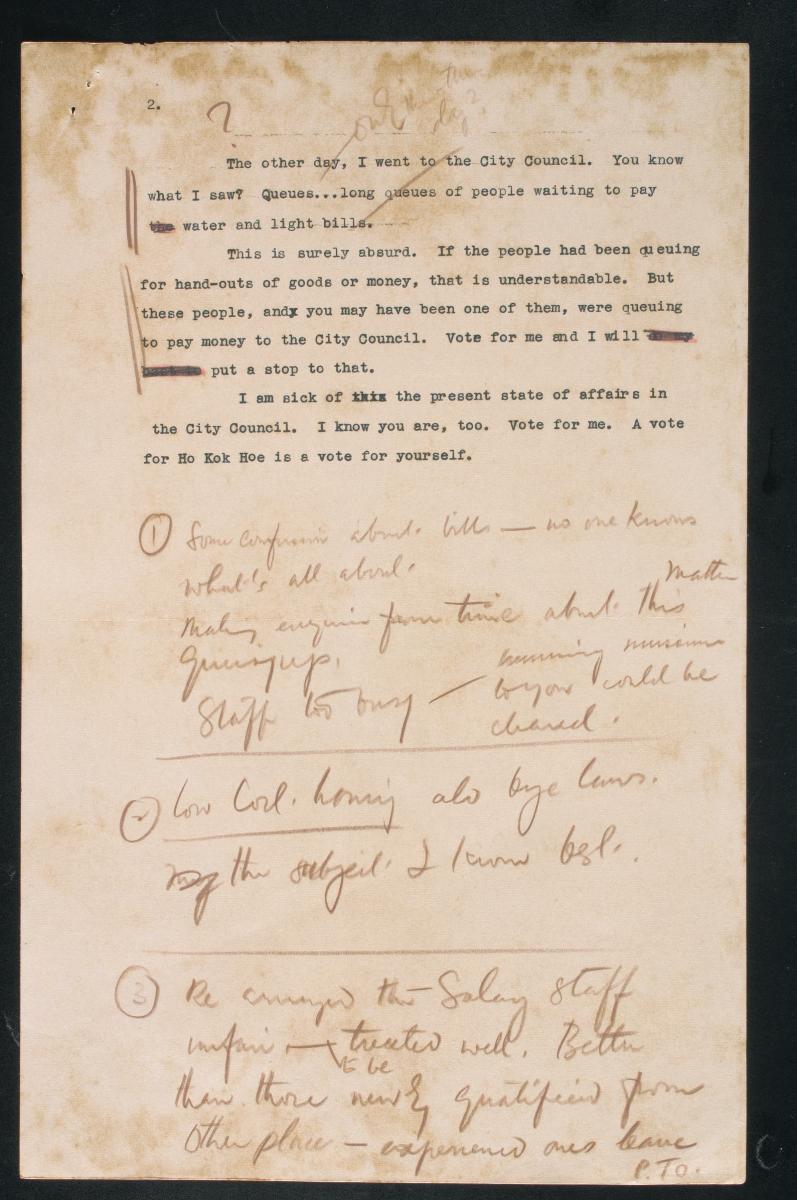 2.
?
The other day, I went to the City Council. You know
what I saw? Queues...long queues of people waiting to pay
the water and light bills.
This is surely absurd. If the people had been queuing
for hand-outs of goods or money, that is understandable. But
these people, andx you may have been one of them, were queuing
to pay money to the City Council. Vote for me and I will do my
best to put a stop to that.
I am sick of this the present state of affairs in
the City Council. I know you are, too. Vote for me. A vote
for Ho Kok Hoe is a vote for yourself.
1 Some confusion about bills — no one knows
what's all about.
Matter
time about this
Staff too busy —
to you could be
cleared.
2 Low Cost housing also bye laws.
the subject I know best.
3 Re arranged the Salary Staff
unfair — treated well. Better
to be
than those newly qualified from
Other place — experienced ones leave
P.T.O.